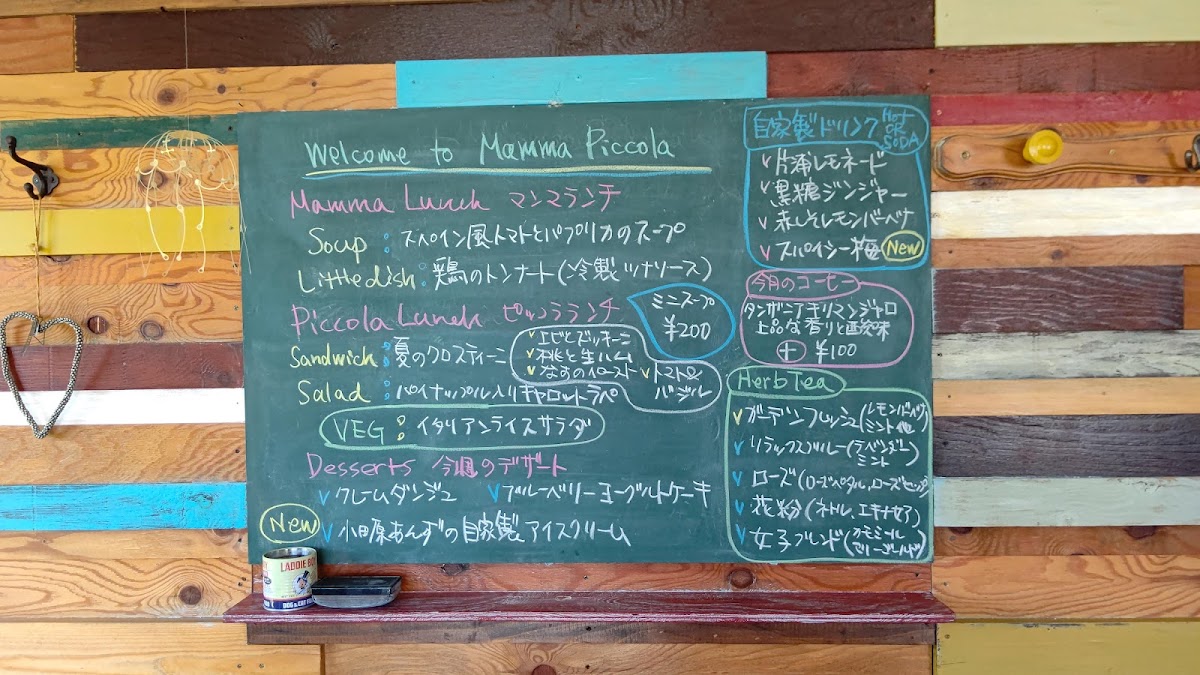 Welcome to Mamma Piccola
Mamma Lunch マンマランチ
Soup : スペイン風トマトとパプリカのスープ
Little dish : 鶏のトンナート(冷製ツナソース)
ミニスープ
¥200
Piccola Lunch ピッコラランチ
Sandwich : 夏のクロスティーニ
エビとズッキーニ
桃と生ハム
なすのペースト
トマト&
バジル
Salad : パイナップル入りキャロットラペ
VEG : イタリアンライスサラダ
Desserts 今週のデザート
クレームダンジュ ブルーベリーヨーグルトケーキ
New 小田原あんずの自家製アイスクリーム
自家製ドリンク HOT OR SODA
片浦レモネード
黒糖ジンジャー
赤しそレモンバーベナ
スパイシー梅 New
今月のコーヒー
タンザニアキリマンジャロ
上品な香りと酸味
+ ¥100
Herb Tea
ガーデンフレッシュ(レモンバーベナ
ミント他)
リラックスブルー(ラベンダー
ミント)
ローズ(ローズペタル、ローズヒップ)
花粉(ネトル、エキナセア)
女子ブレンド(カモミール
マリーゴールド)
LADDIE BOY
DOG &